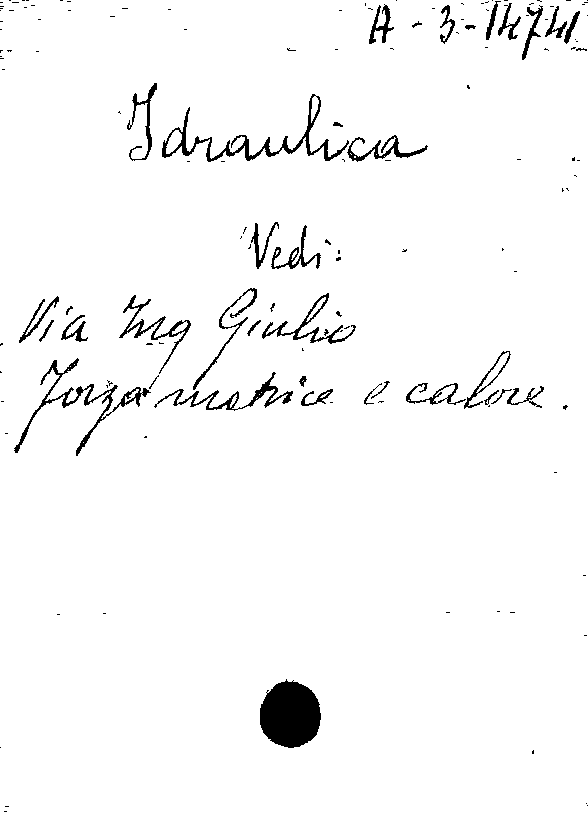 A-3-14741
Idraulica
Vedi:
Via Ing Giulio
Forza matrice e calore.